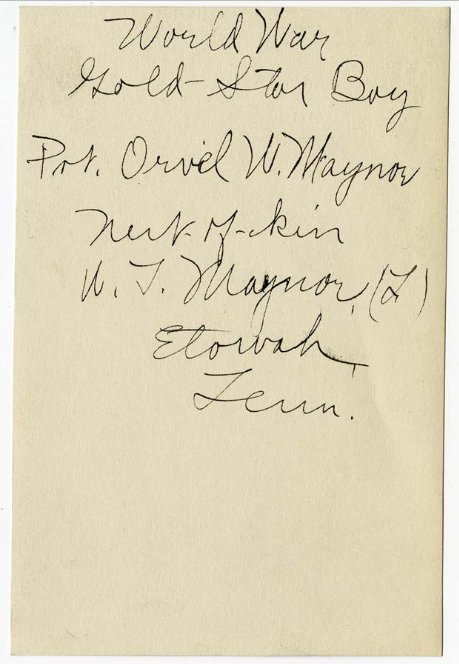 World War
Gold-Star Boy
Pvt. Orvel W. Maynor
Next-of-kin
W. T. Maynor, (L)
Etowah,
Tenn.